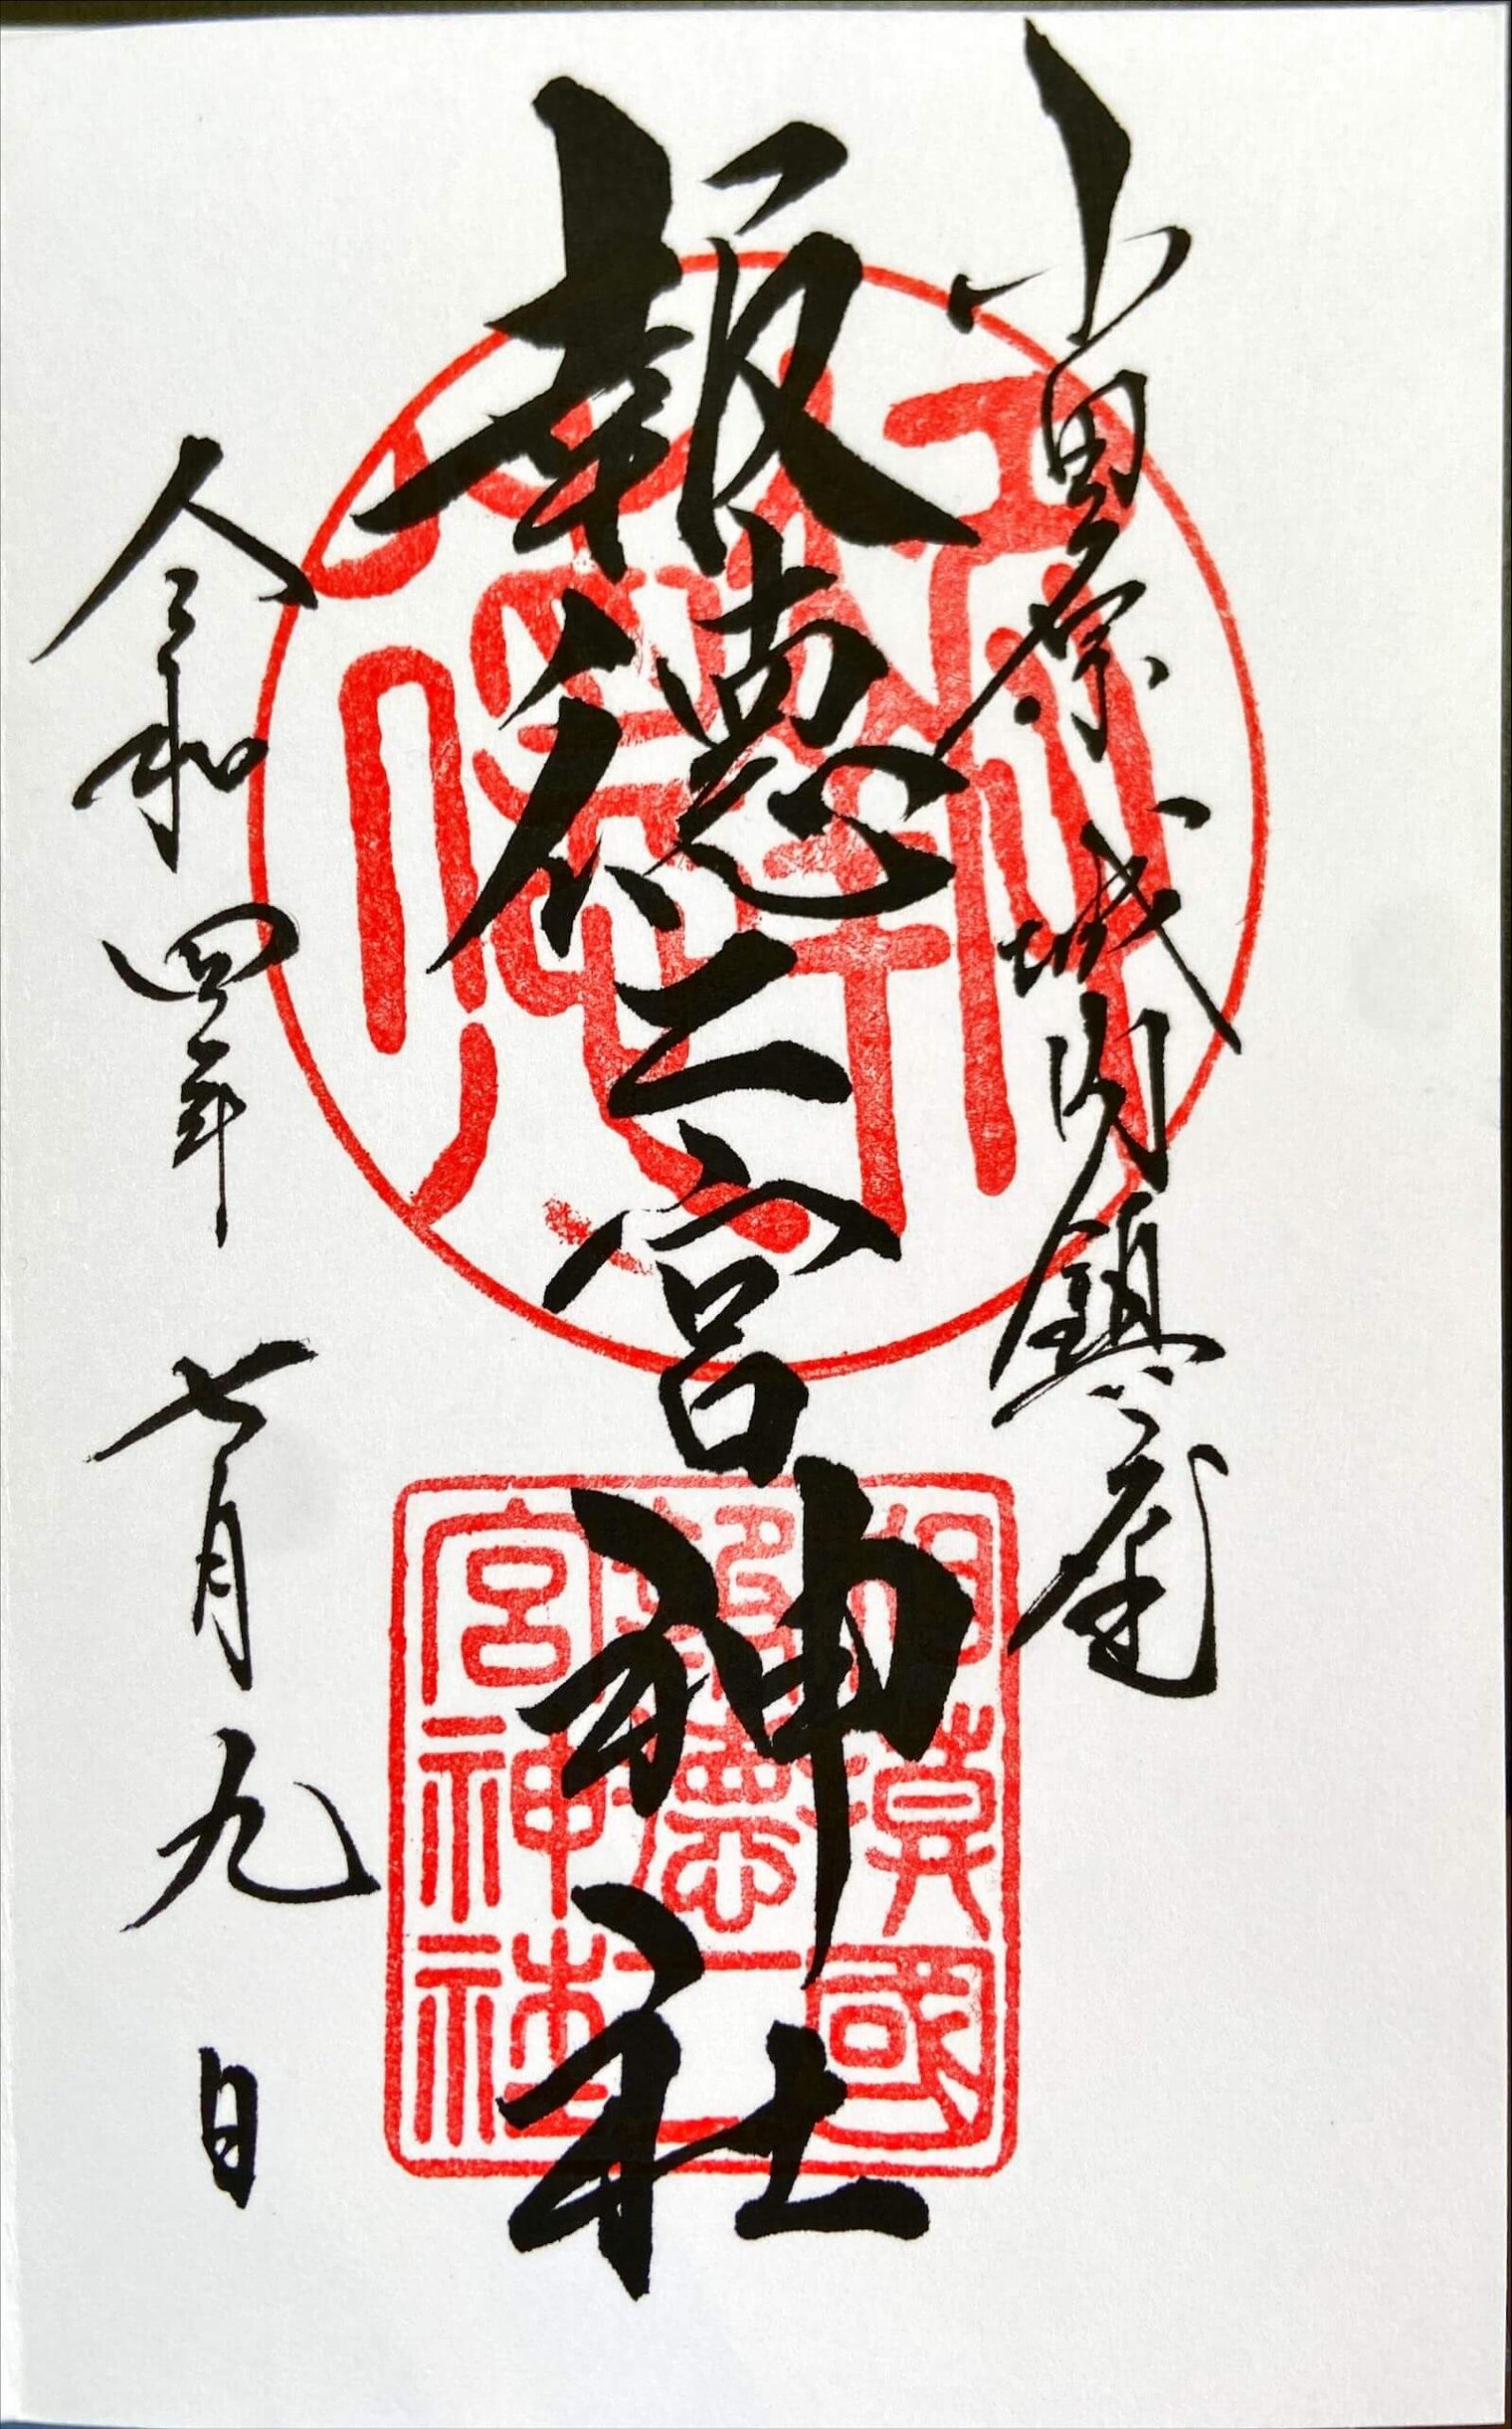 小田原城内鎮座
報徳二宮神社
令和四年七月九日
相模國
報徳二
宮神社